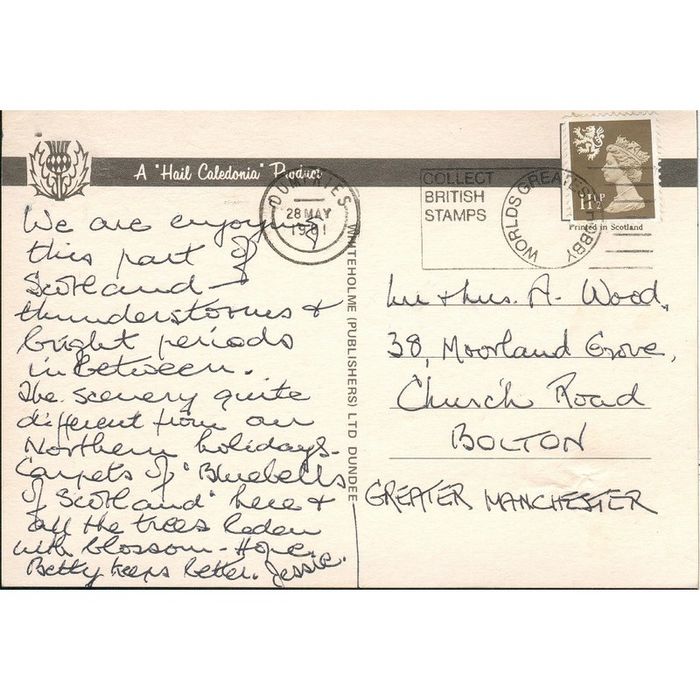 A "Hail Caledonia" Product
DUMFRIES
28 MAY
1981
COLLECT
BRITISH
STAMPS
WORLDS GREATEST HOBBY
11½P
Printed in Scotland
We are enjoying
this part of
Scotland -
thunderstorms &
bright periods
in between.
The scenery quite
different from our
Northern holidays.
Carpets of "Bluebells
of Scotland" here &
all the trees laden
with blossom - Hope
Betty keeps better. Jessie.
WHITEHOLME (PUBLISHERS) LTD DUNDEE
A. Wood,
38, Moorland Grove,
Church Road
BOLTON
GREATER MANCHESTER